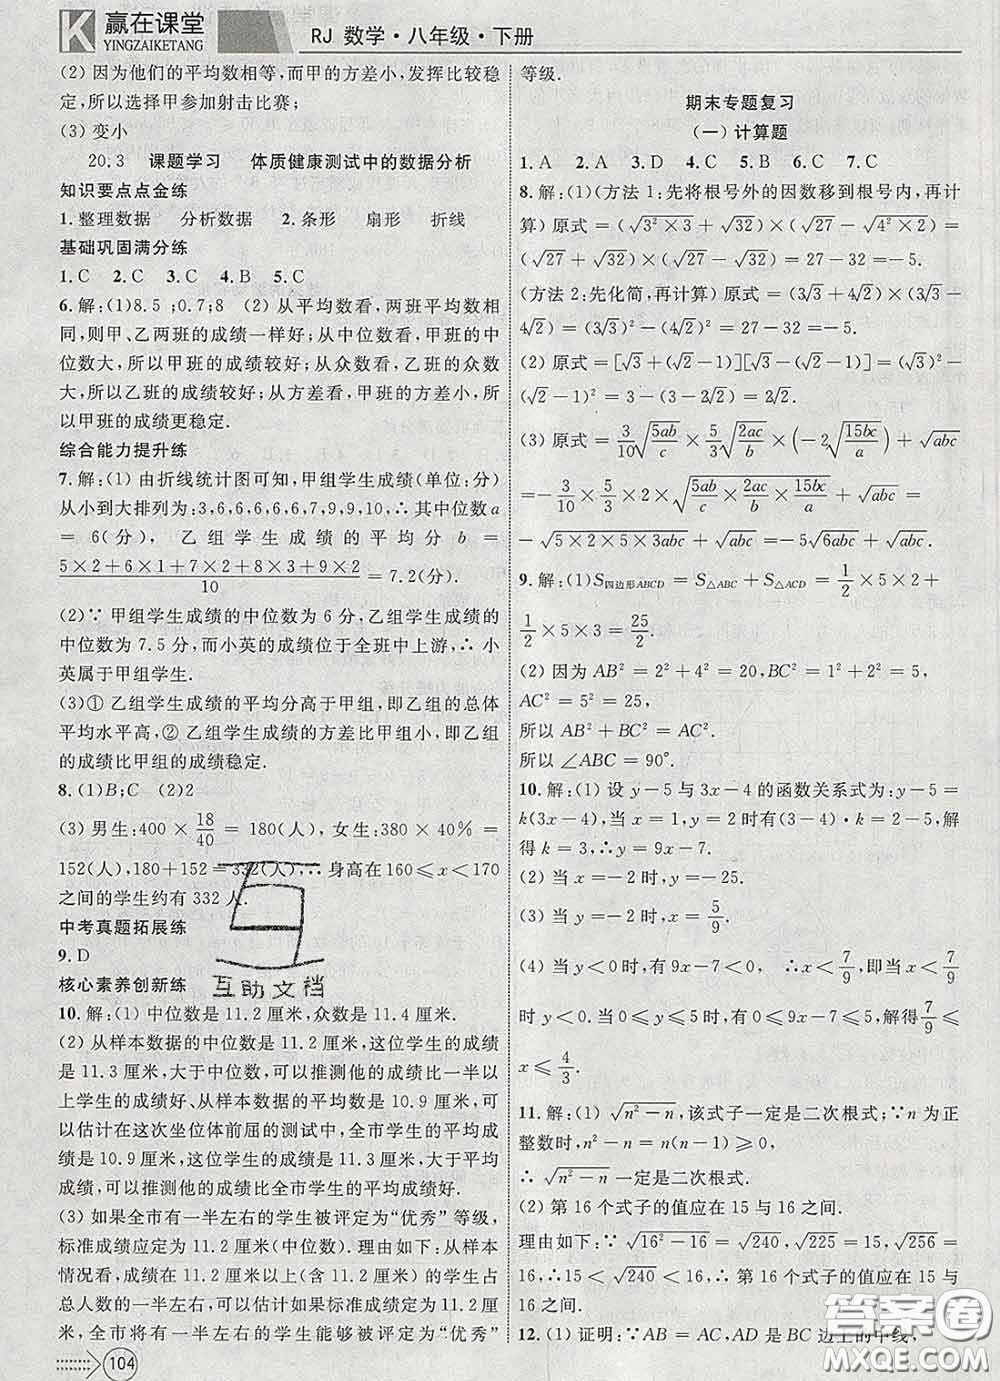 赢在课堂
YINGZAIKETANG
RJ 数学·八年级·下册
(2) 因为他们的平均数相等,而甲的方差小,发挥比较稳
定,所以选择甲参加射击比赛;
(3) 变小
20.3 课题学习 体质健康测试中的数据分析
知识要点点金练
1.整理数据 分析数据 2.条形 扇形 折线
基础巩固满分练
1.C 2.C 3.C 4.B 5.C
6.解:(1)8.5 ;0.7;8 (2) 从平均数看,两班平均数相
同,则甲、乙两班的成绩一样好;从中位数看,甲班的中
位数大,所以甲班的成绩较好;从众数看,乙班的众数
大,所以乙班的成绩较好;从方差看,甲班的方差小,所
以甲班的成绩更稳定.
综合能力提升练
7.解:(1) 由折线统计图可知,甲组学生成绩(单位:分)
从小到大排列为:3,6,6,6,6,6,7,9,9,10,∴ 其中位数a
= 6(分), 乙组学生成绩的平均分 b =
(5×2+6×1+7×2+8×3+9×2)/10 = 7.2(分).
(2)∵ 甲组学生成绩的中位数为 6 分,乙组学生成绩的
中位数为 7.5 分,而小英的成绩位于全班中上游,∴ 小
英属于甲组学生.
(3)① 乙组学生成绩的平均分高于甲组,即乙组的总体
平均水平高,② 乙组学生成绩的方差比甲组小,即乙组
的成绩比甲组的成绩稳定.
8.(1)B;C (2)2
(3) 男生:400 × 18/40 = 180(人),女生:380 × 40% =
152(人),180+152=332(人).∴ 身高在160≤x<170
之间的学生约有 332 人.
中考真题拓展练
9.D
核心素养创新练
10.解:(1) 中位数是 11.2 厘米,众数是 11.4 厘米.
(2) 从样本数据的中位数是 11.2 厘米,这位学生的成绩
是 11.3 厘米,大于中位数,可以推测他的成绩比一半以
上学生的成绩好、从样本数据的平均数是 10.9 厘米,可
以估计出在这次坐位体前屈的测试中,全市学生的平均成
绩是 10.9 厘米,这位学生的成绩是 11.3 厘米,大于平均
成绩,可以推测他的成绩比全市学生的平均成绩好.
(3) 如果全市有一半左右的学生被评定为“优秀”等级,
标准成绩应定为 11.2 厘米(中位数).理由如下:从样本
情况看,成绩在 11.2 厘米以上(含 11.2 厘米)的学生占
总人数的一半左右,可以估计如果标准成绩定为 11.2 厘
米,全市将有一半左右的学生能够被评定为“优秀”
104
等级.
期末专题复习
(一) 计算题
1.A 2.A 3.D 4.C 5.C 6.C 7.C
8.解:(1)(方法 1:先将根号外的因数移到根号内,再计
算) 原式 = (√(3²×3) + √32) × (√27 − √(4²×2)) =
(√27 + √32) × (√27 − √32) = 27 − 32 = −5.
(方法 2:先化简,再计算) 原式 = (3√3 + 4√2) × (3√3 −
4√2) = (3√3)² − (4√2)² = 27 − 32 = −5.
(2) 原式 = [√3 + (√2 − 1)][√3 − (√2 − 1)] = (√3)² −
(√2 − 1)² = 3 − (3 − 2√2) = 2√2.
(3) 原式 = 3/10 √(5ab/c) × 5/3 √(2ac/b) × (−2√(15bc/a)) ÷ √abc
= − 3/10 × 5/3 × 2 × √(5ab/c × 2ac/b × 15bc/a) ÷ √abc =
− √(5×2×5×3abc) ÷ √abc = −5√6abc ÷ √abc.
9.解:(1)S四边形ABCD = S△ABC + S△ACD = 1/2 × 5 × 2 +
1/2 × 5 × 3 = 25/2.
(2) 因为 AB² = 2² + 4² = 20,BC² = 1² + 2² = 5,
AC² = 5² = 25,
所以 AB² + BC² = AC².
所以 ∠ABC = 90°.
10.解:(1) 设 y−5 与 3x−4 的函数关系式为:y−5 =
k(3x−4),当 x = 1,y = 2 时有(3−4)·k = 2−5,解
得 k = 3,∴ y = 9x−7.
(2) 当 x = −2 时,y = −25.
(3) 当 y = −2 时,x = 5/9.
(4) 当 y < 0 时,有 9x − 7 < 0, ∴ x < 7/9,即当 x < 7/9
时 y < 0. 当 0 ≤ y ≤ 5 时,有 0 ≤ 9x−7 ≤ 5,解得 7/9 ≤
x ≤ 4/3.
11.解:(1) √(n²−n),该式子一定是二次根式;∵ n 为正
整数时,n² − n = n(n−1) ≥ 0,
∴ √(n²−n) 一定是二次根式.
(2) 第 16 个式子的值应在 15 与 16 之间.
理由如下:∵ √(16²−16) = √240,√225 = 15,√256 =
16,∴15 < √240 < 16,∴ 第 16 个式子的值应在 15 与
16 之间.
12.(1) 证明:∵AB = AC,AD 是 BC 边上的中线,
互助文档
答案圈
MXQE.COM